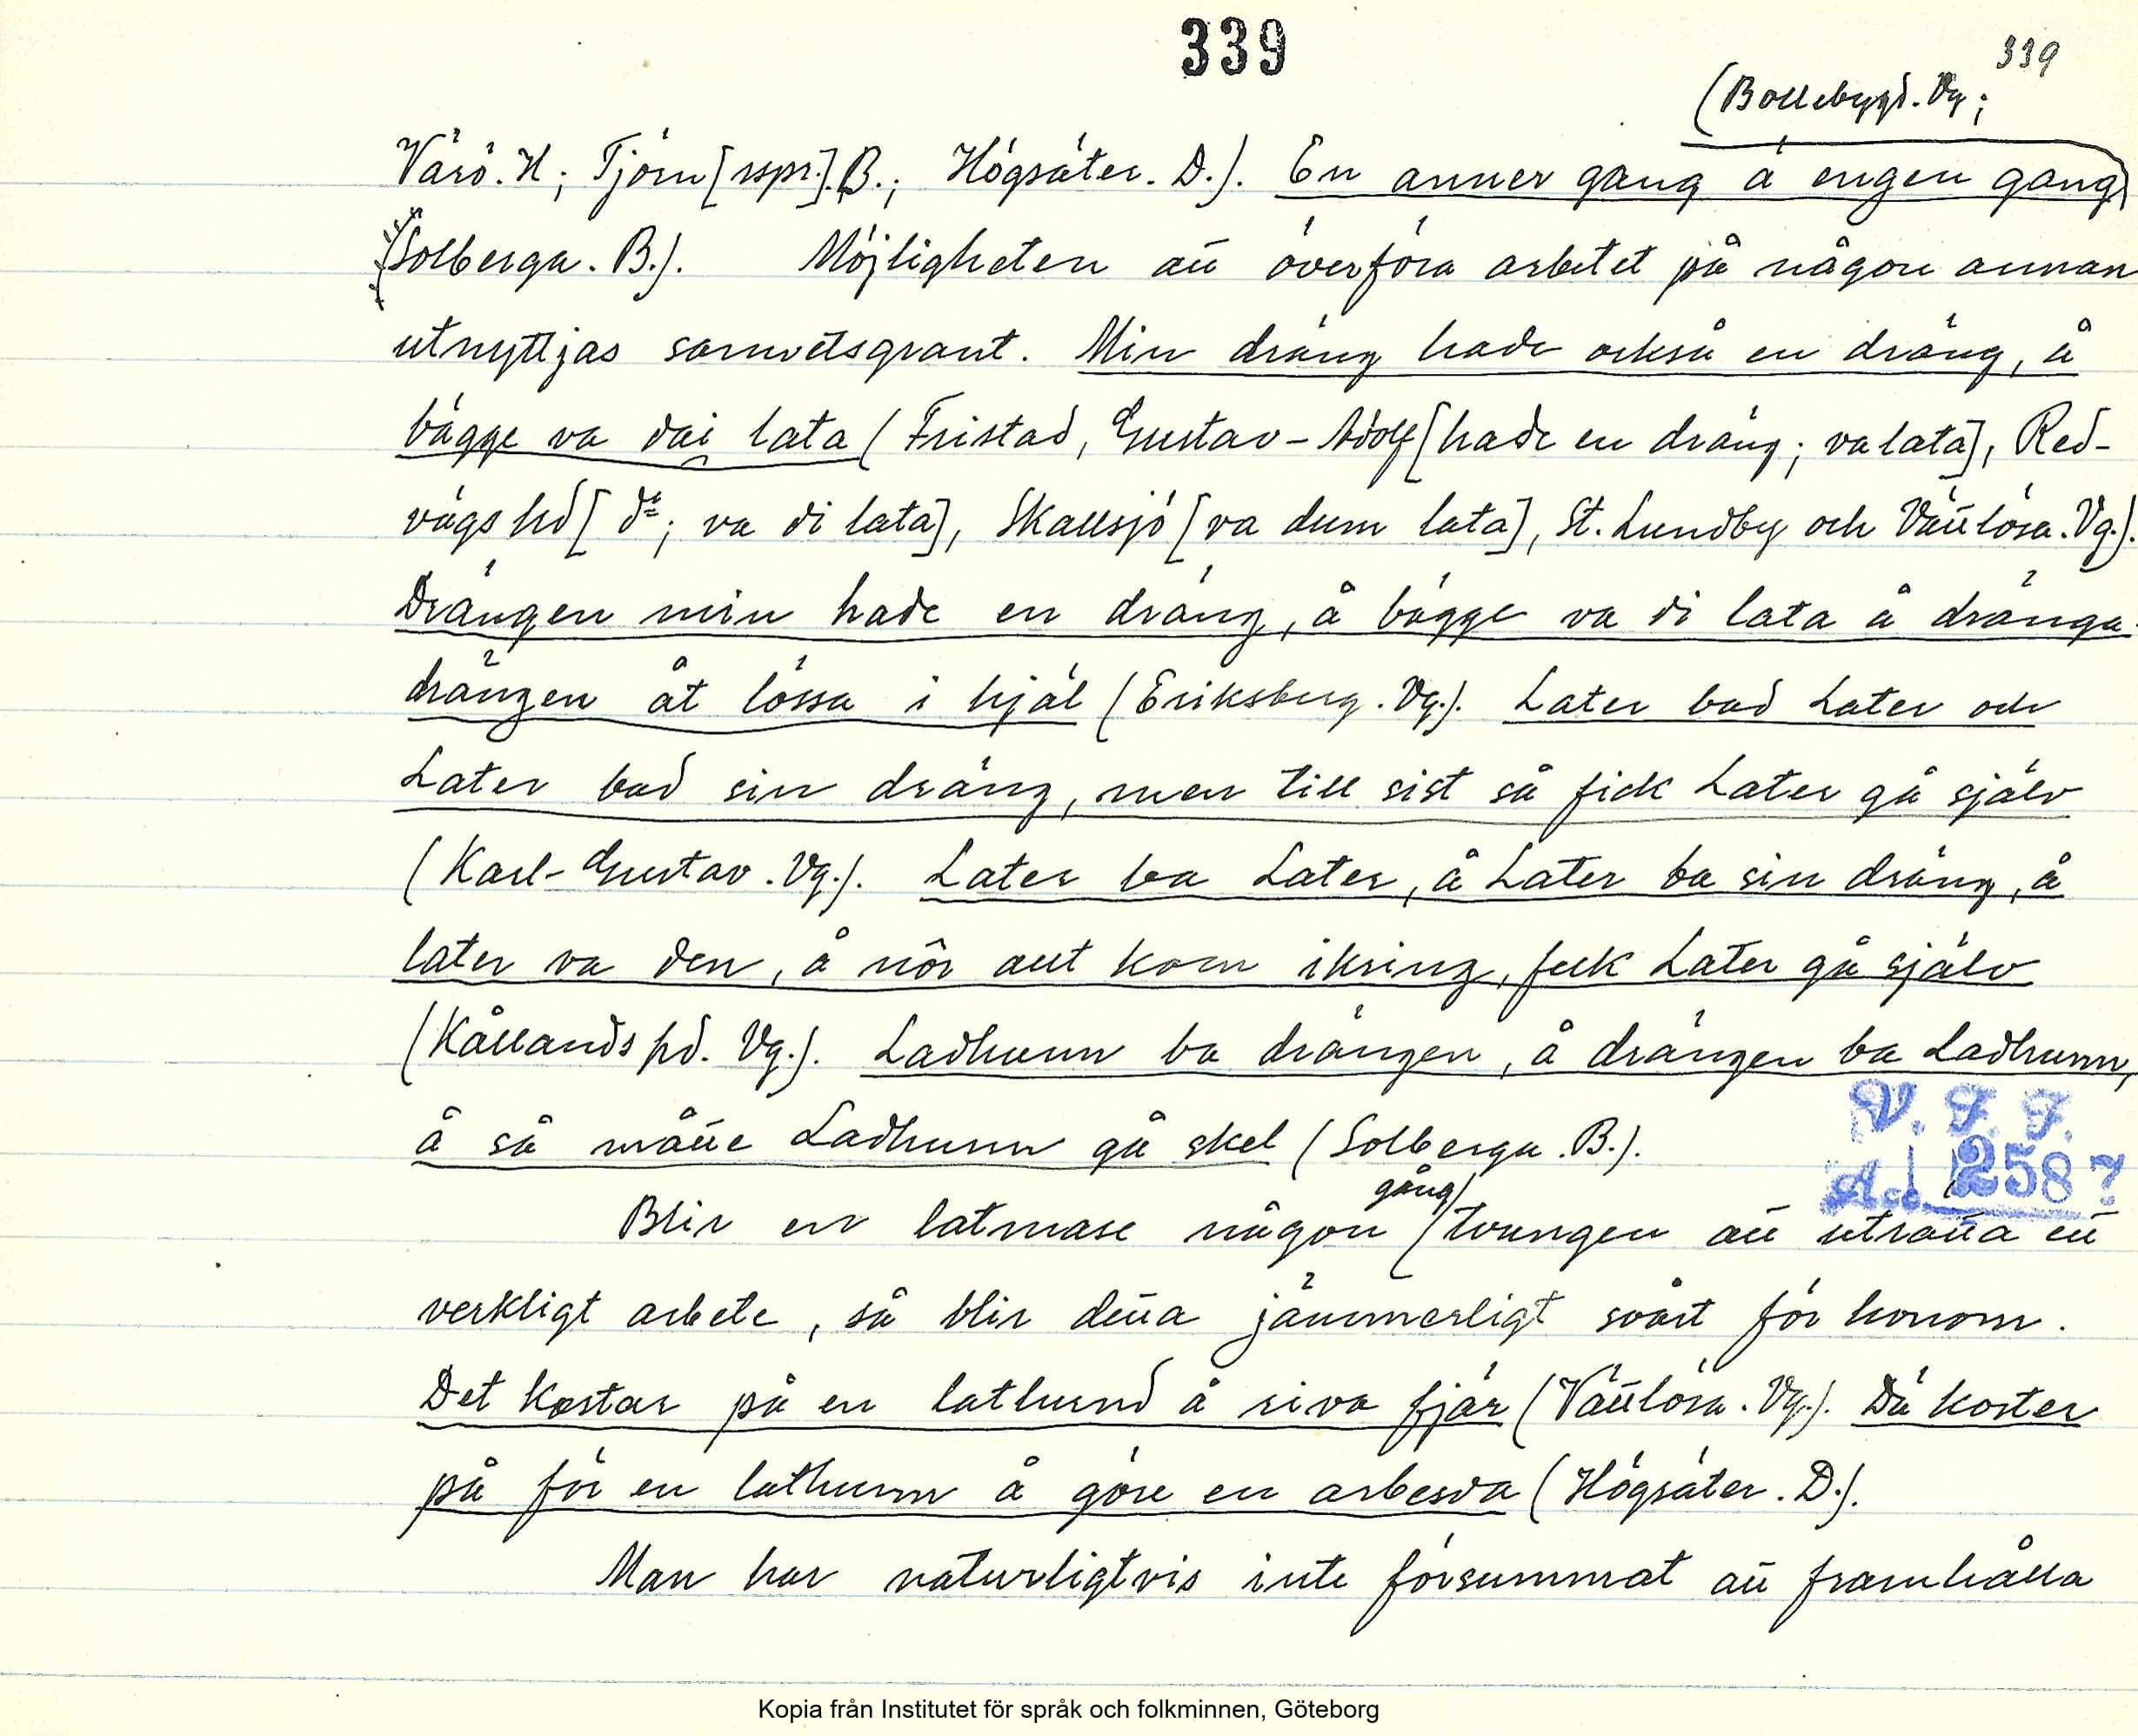 339
339
(Bollebygd. Vg;
Värö. H; Tjörn [sspr.]. B.; Högsäter. D.). En anner gang ä engen gang
(Solberga. B.). Möjligheten att överföra arbetet på någon annan
utnyttjas samvetsgrant. Min dräng hade också en dräng, å
bägge va däi lata (Fristad, Gustav-Adolf [hade en dräng; va lata], Red-
vägs hd [d:o; va di lata], Skallsjö [va dum lata], St. Lundby och Vättlösa. Vg.).
Drängen min hade en dräng, å bägge va di lata å dränga-
drängen åt lössa i hjäl (Eriksberg. Vg.). Later bad Later och
Later bad sin dräng, men till sist så fick Later gå själv
(Karl-Gustav. Vg.). Later ba Later, å Later ba sin dräng, å
later va den, å nör aut kom ikring, fekk Later gå själv
(Kållands hd. Vg.). Ladhunn ba drängen, å drängen ba Ladhunn,
å så måtte Ladhunn gå skel (Solberga. B.).
V. F. F.
Acc. 258?
gång
Blir en latmase någon tvungen att uträtta ett
verkligt arbete, så blir detta jämmerligt svårt för honom.
Det kostar på en lathund å riva fjär (Vättlösa. Vg.). Dä koster
på för en lathunn å göre en arbesda (Högsäter. D.).
Man har naturligtvis inte försummat att framhålla
Kopia från Institutet för språk och folkminnen, Göteborg